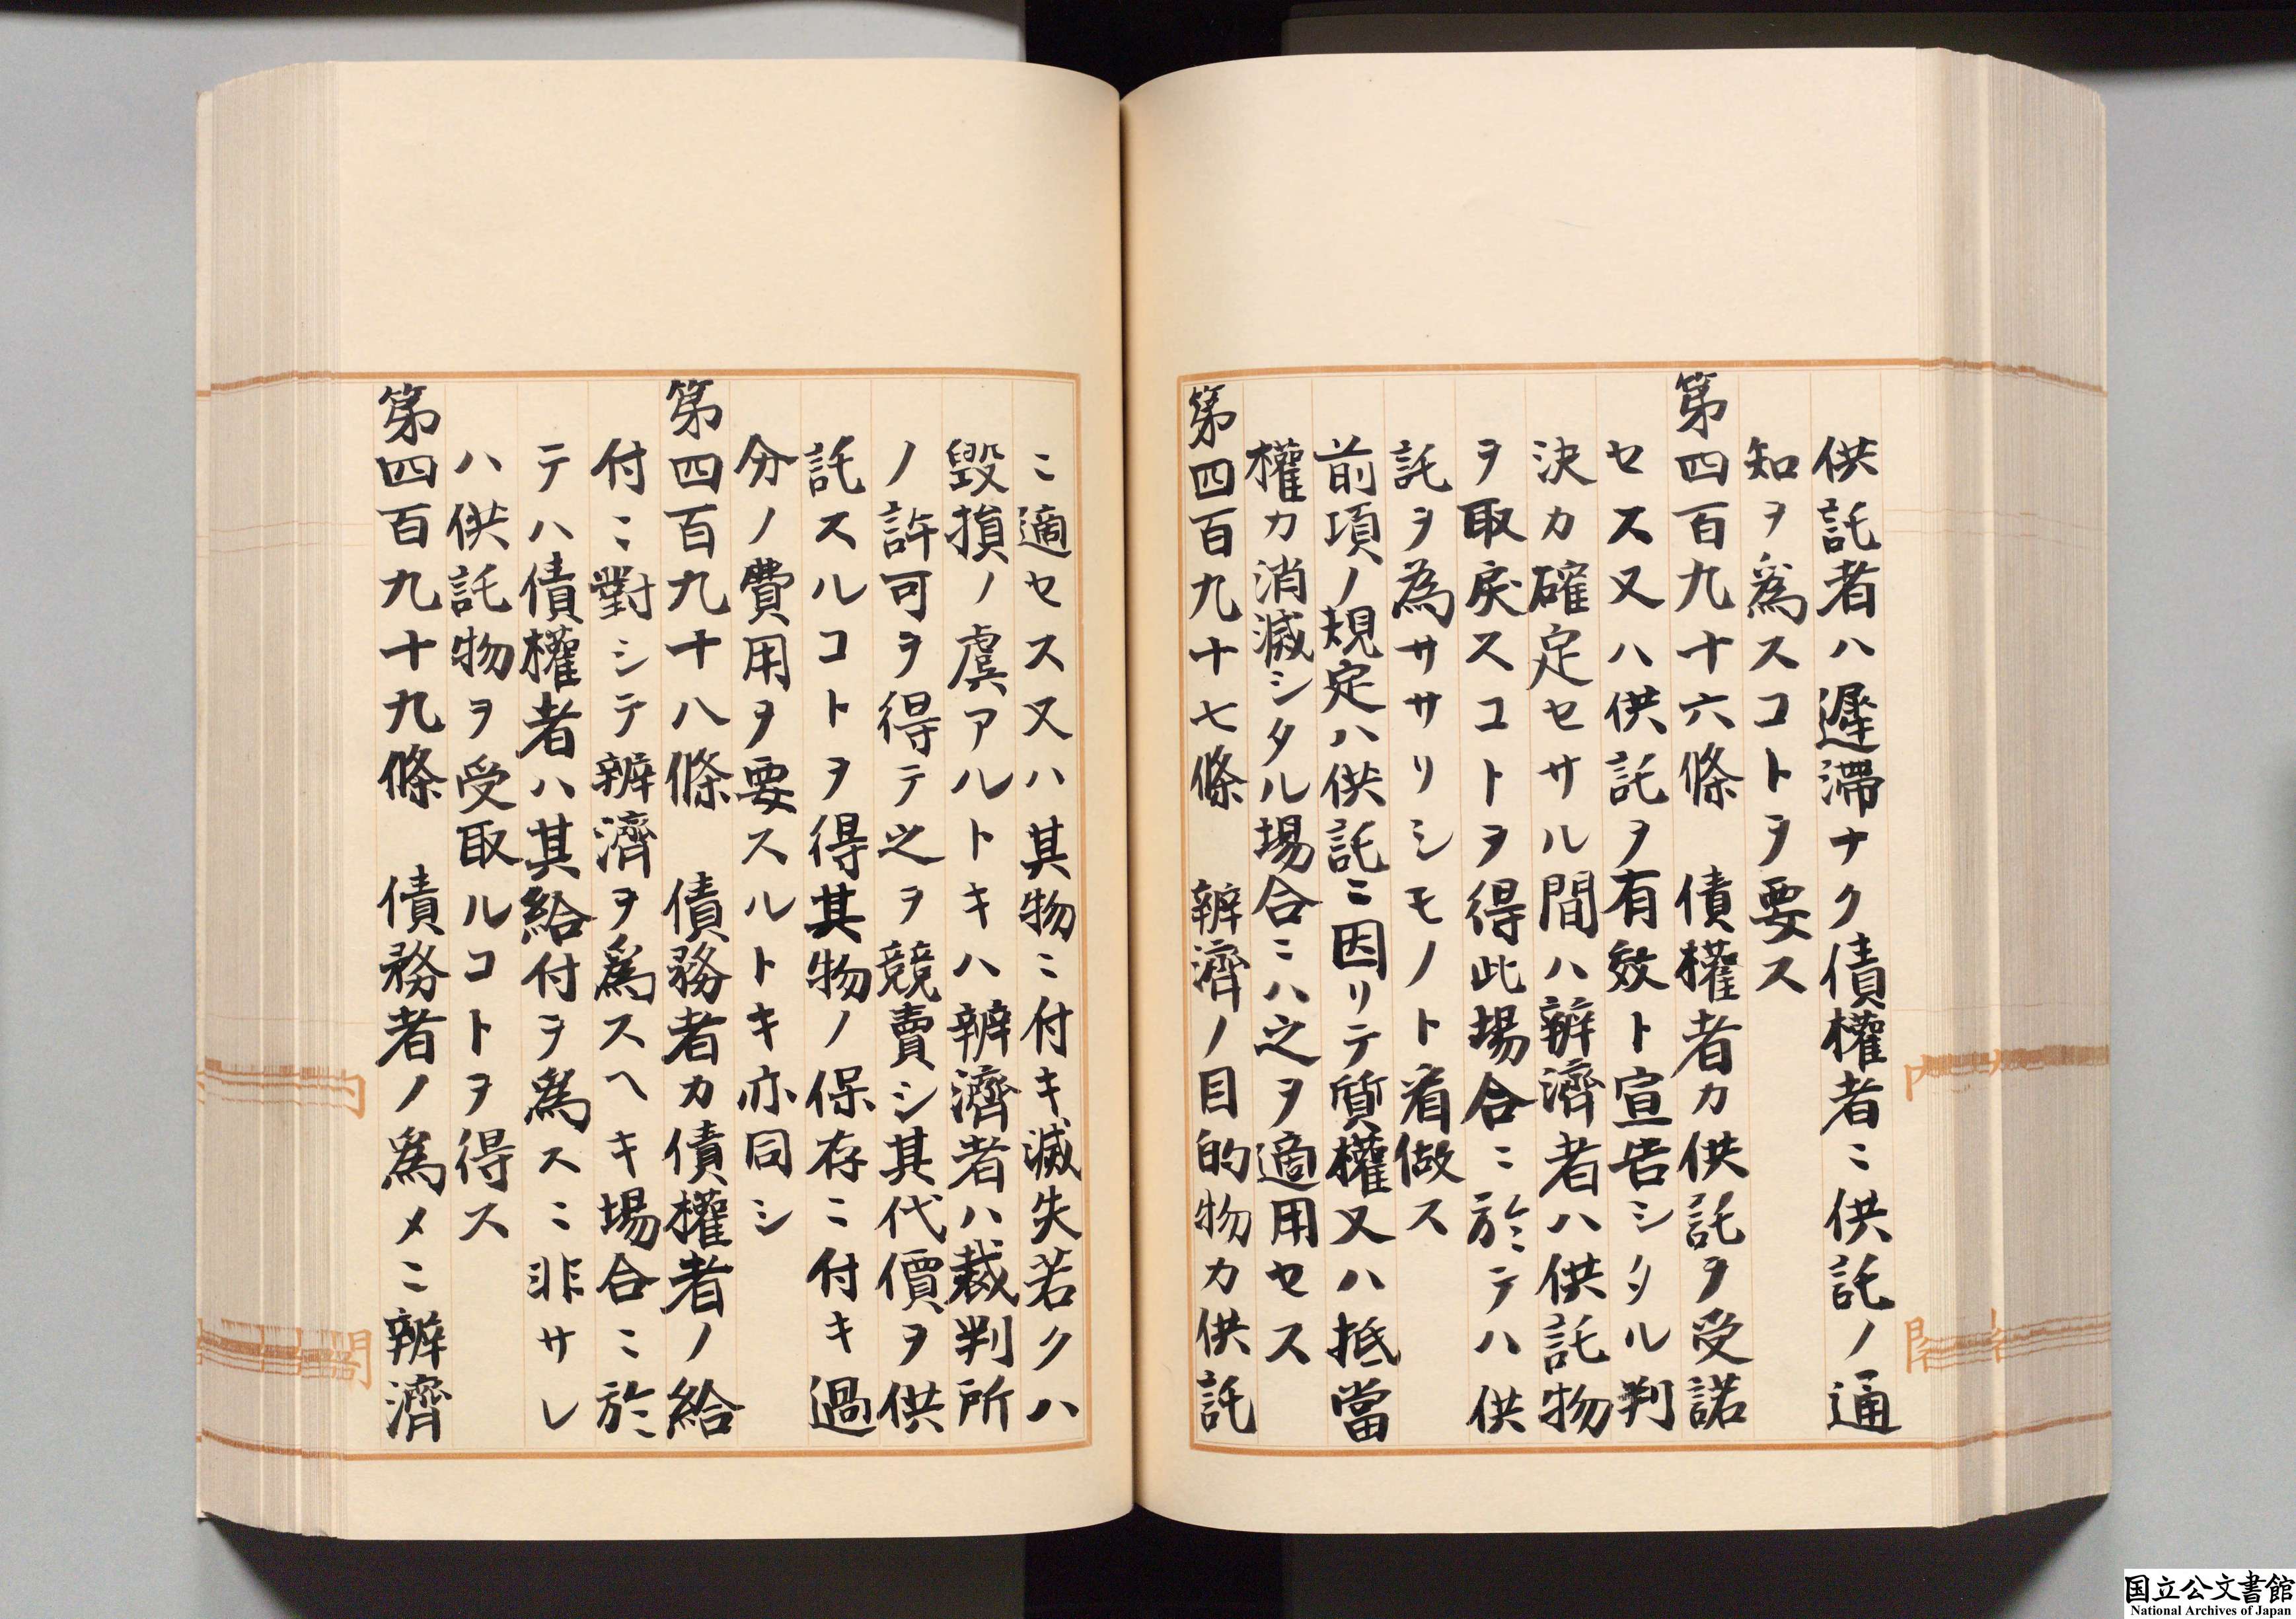 供託者ハ遲滯ナク債權者ニ供託ノ通
知ヲ爲スコトヲ要ス
第四百九十六條　債權者カ供託ヲ受諾
セス又ハ供託ヲ有效ト宣告シタル判
決カ確定セサル間ハ辨濟者ハ供託物
ヲ取戾スコトヲ得此場合ニ於テハ供
託ヲ為サヽリシモノト看做ス
前項ノ規定ハ供託ニ因リテ質權又ハ抵當
權カ消滅シタル場合ニハ之ヲ適用セス
第四百九十七條　辨濟ノ目的物カ供託
ニ適セス又ハ其物ニ付キ滅失若クハ
毀損ノ虞アルトキハ辨濟者ハ裁判所
ノ許可ヲ得テ之ヲ競賣シ其代價ヲ供
託スルコトヲ得其物ノ保存ニ付キ過
分ノ費用ヲ要スルトキ亦同シ
第四百九十八條　債務者カ債權者ノ給
付ニ對シテ辨濟ヲ爲スヘキ場合ニ於
テハ債權者ハ其給付ヲ爲スニ非サレ
ハ供託物ヲ受取ルコトヲ得ス
第四百九十九條　債務者ノ爲メニ辨濟
内
閣
国立公文書館
National Archives of Japan